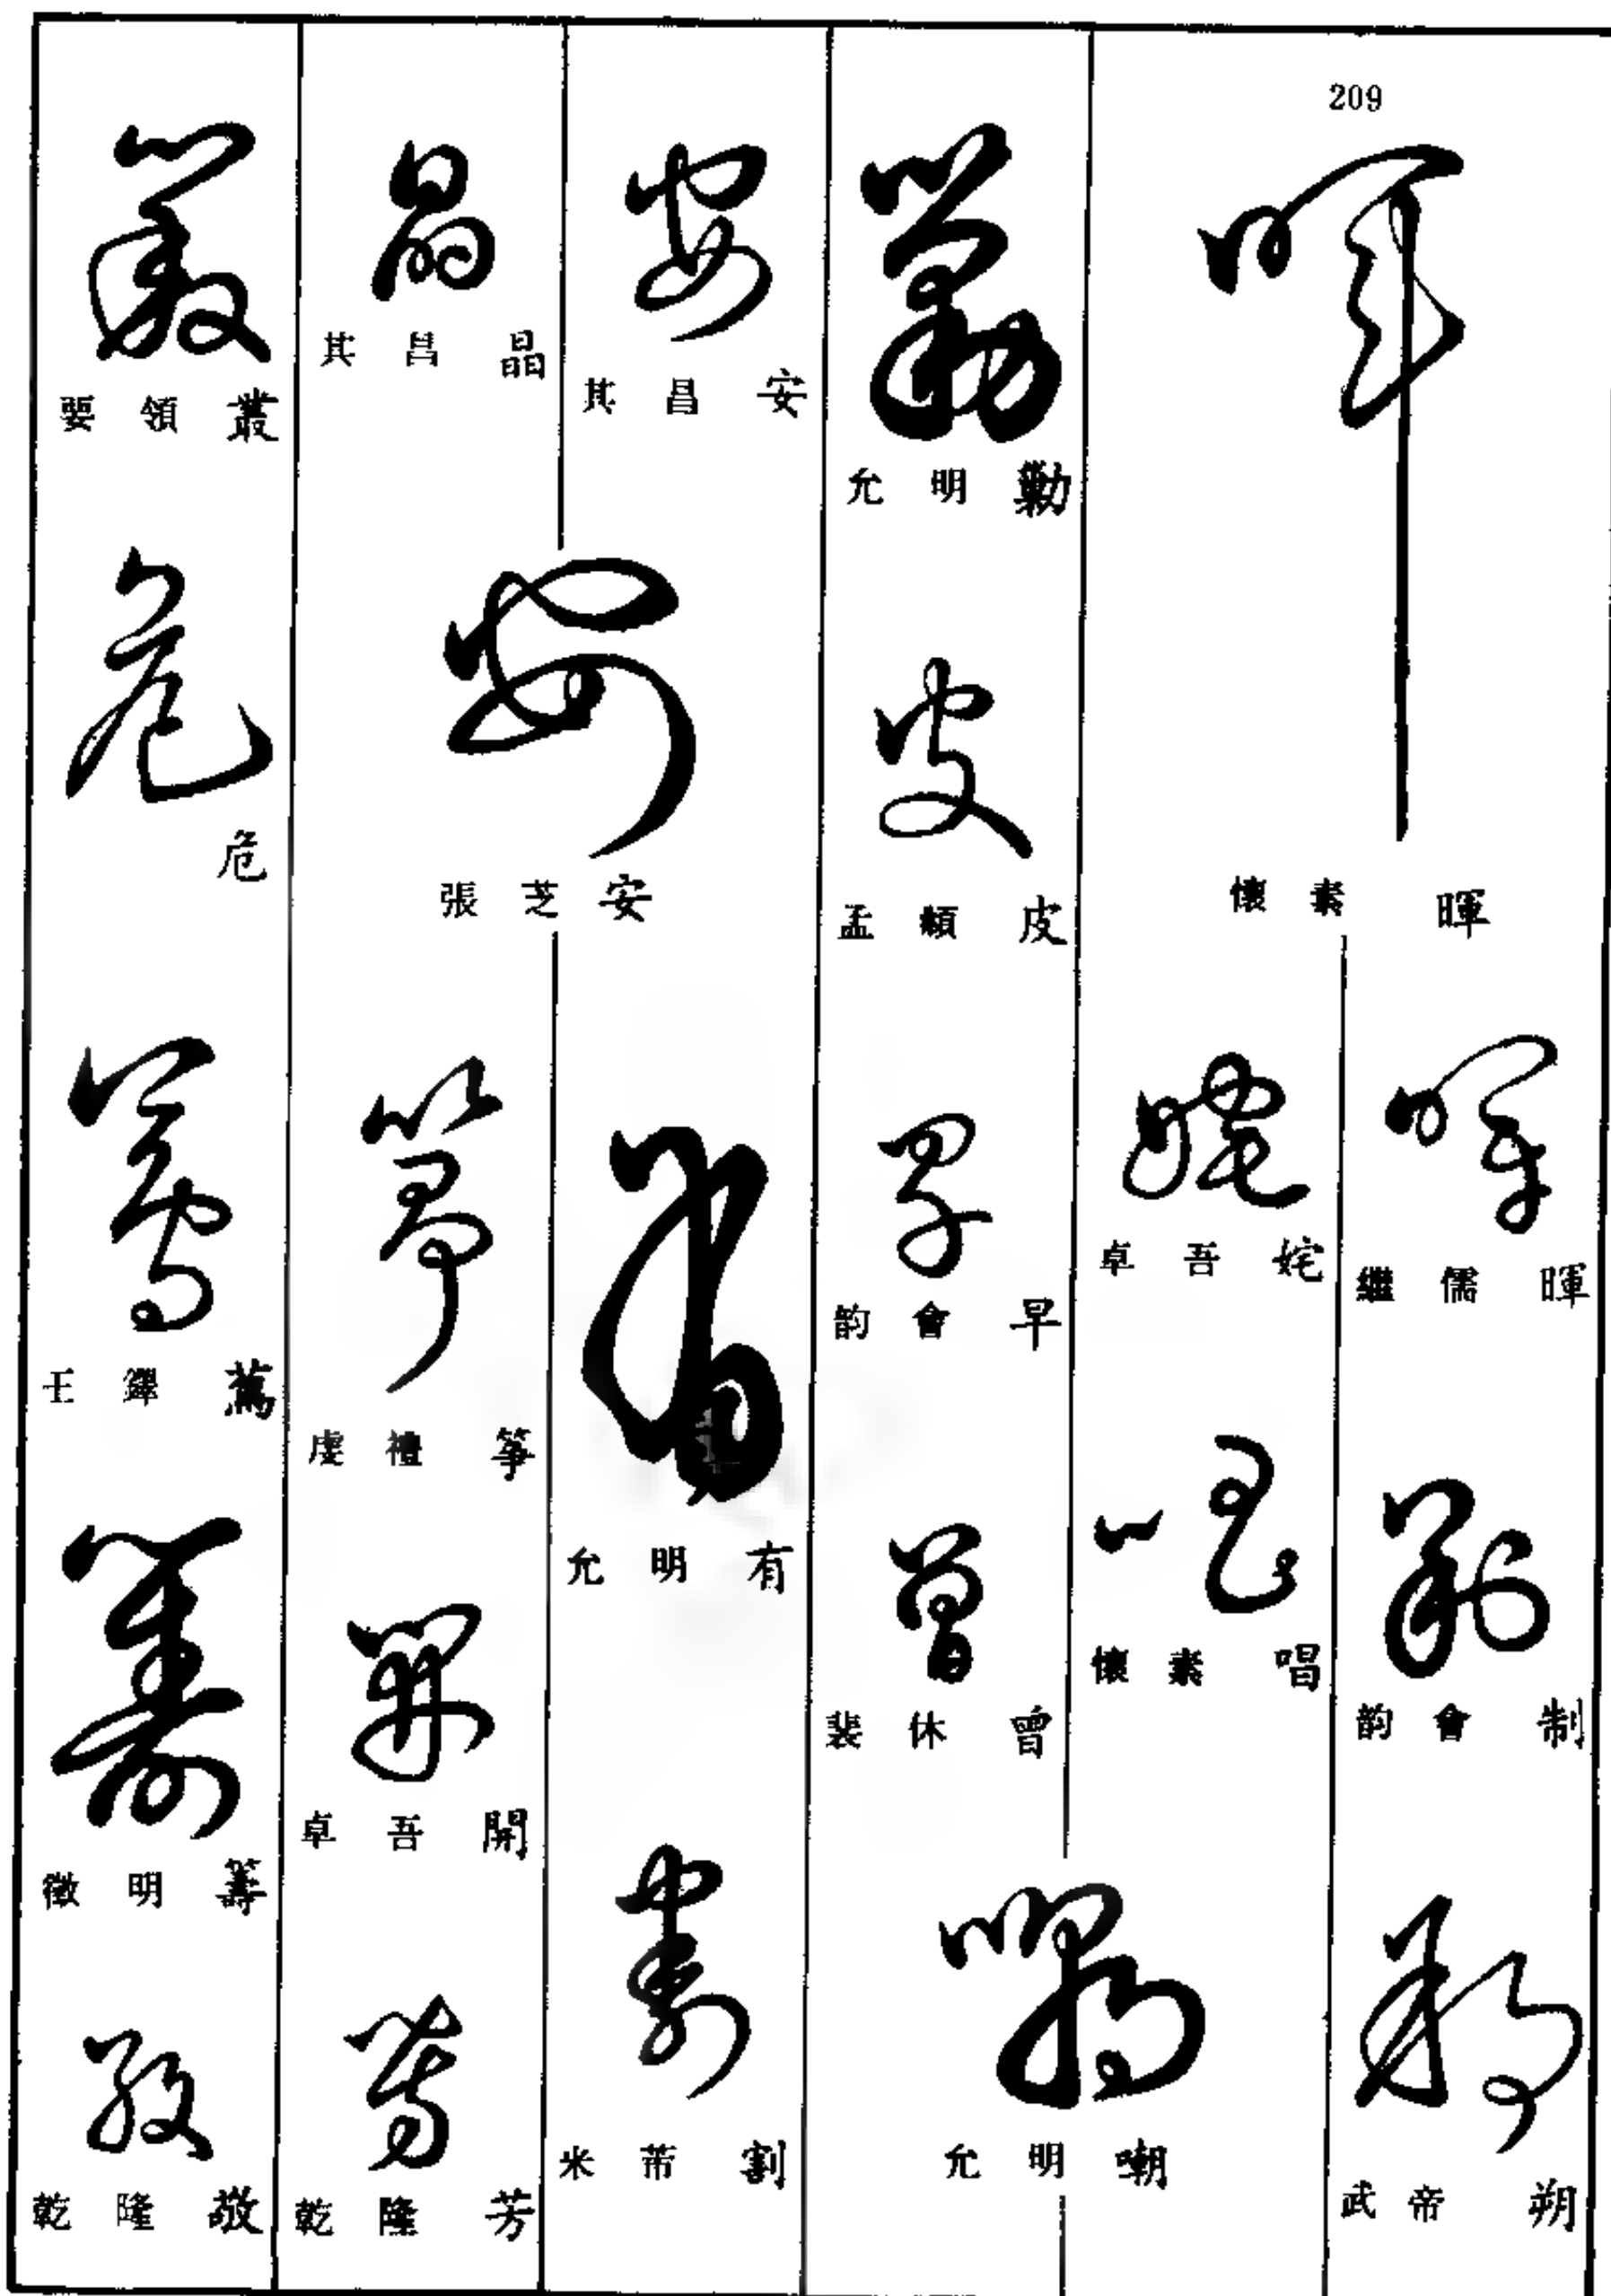 209
懷素 暉
繼儒 暉
韵會 制
武帝 朔
卓吾 姹
懷素 唱
允明 嘲
允明
孟頫 皮
韵會 早
裴休 曾
其昌 安
張芝 安
允明 有
米芾 割
其昌 晶
虔禮 筝
卓吾 開
乾隆 芳
要領 叢
危
王鐸
徵明 籌
乾隆 敬